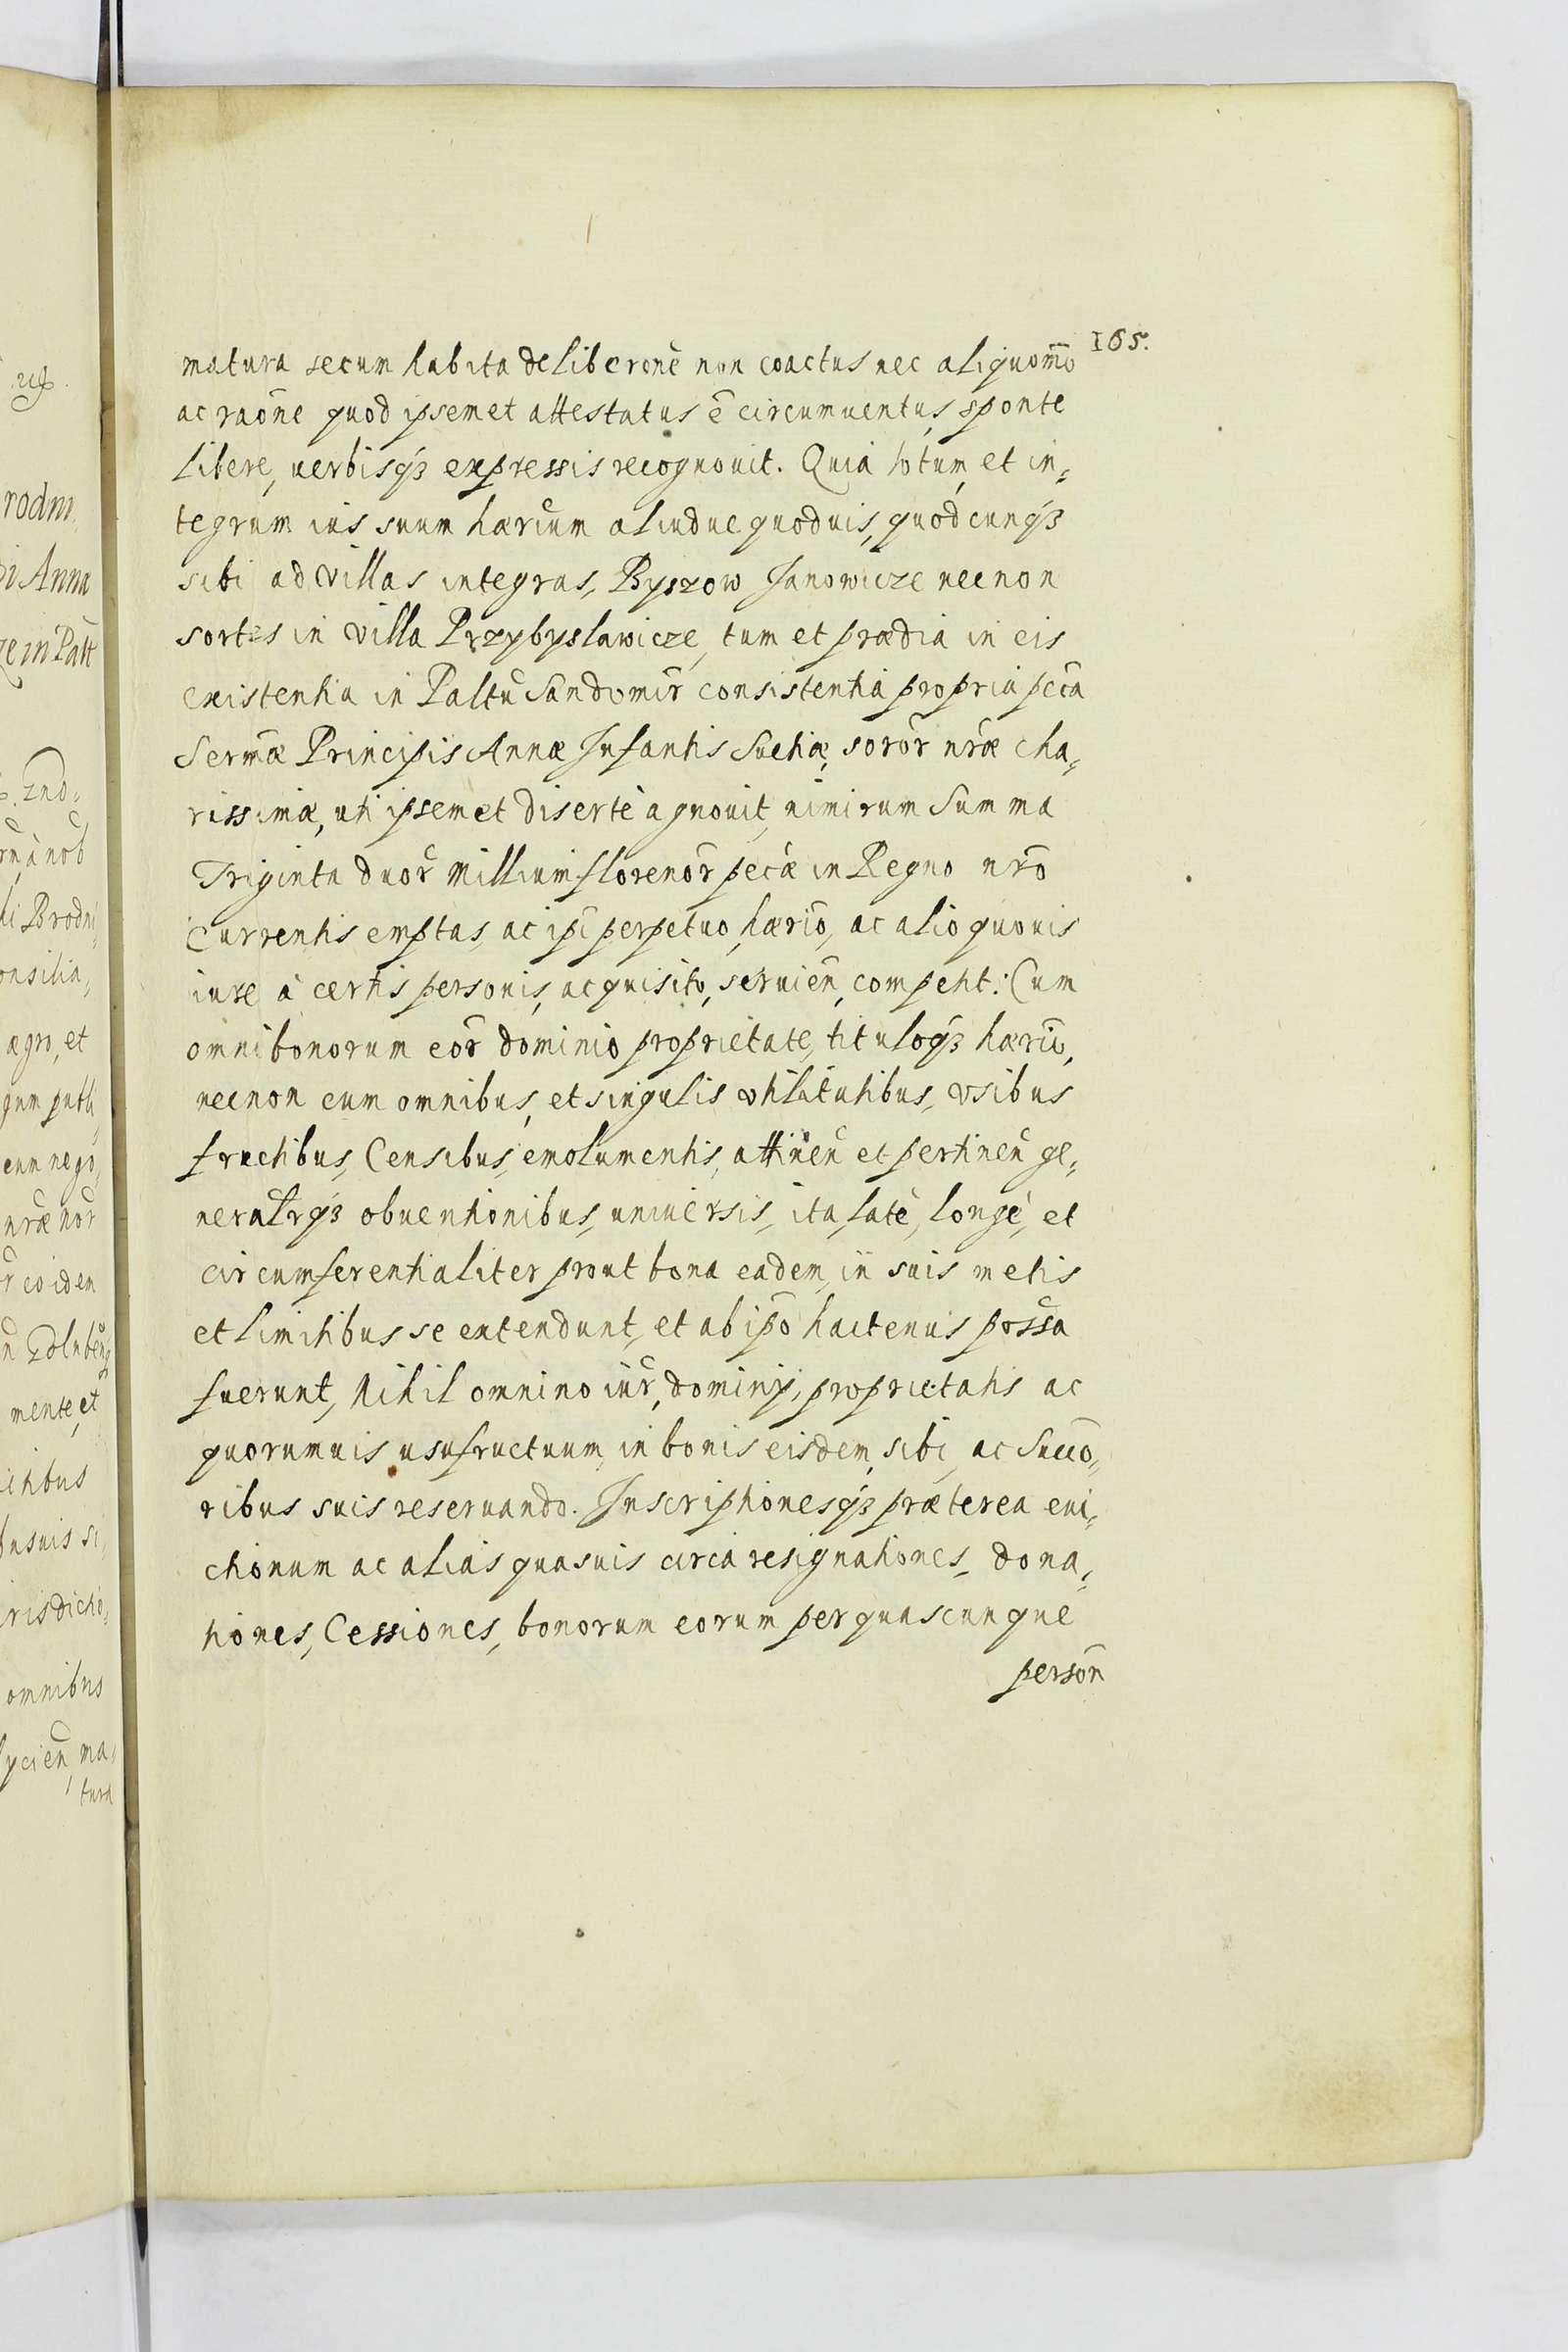 165.
matura secum habita deliberõnè non coactus nec aliquom̃o
ac raõne quod ipsemet attestatus ẽ circumuentus, sponte
libere, uerbisqȝ expressis recognouit. Quia totum, et in„
tegrum ius suum hærium aliudue quoduis, quodcunqȝ
sibi ad villas integras, Byszow Janowicze necnon
sortes in villa Przybyslawicze, tum et prædia in eis
existentia in Paltũ Sandomir̃ consistentia propria pec̃a
Serm̃æ Principis Annæ Infantis Suetiæ, soror̃ nr̃æ cha„
rissimæ, uti ipsemet disertè agnouit, nimirum Summa
Triginta duor̃ Millium florenor̃ pec̃æ in Regno nr̃o
Currentis emptas, ac ip̃i perpetuo hærio, ac alio quouis
iure à certis personis, acquisito, seruien̄, competit: Cum
omni bonorum eor̃ dominio proprietate, tituloqȝ hærio,
necnon cum omnibus, et singulis vtilitatibus, vsibus
fructibus, Censibus, emolumentis, attinen̄ et pertinen̄ ge„
neralr̃qȝ obuentionibus, uniuersis, ita, latè, longè, et
circumferentialiter prout bona eadem, in suis metis
et limitibus se extendunt, et ab ip̃o hactenus poss̃a
fuerunt, Nihil omnino iur̃, dominij, proprietatis ac
quorumuis usufructuum, in bonis eisdem, sibi, ac Succõ„
ribus suis reseruando. Inscriptionesqȝ præterea eui„
ctionum ac alias quasuis circa resignationes, dona„
tiones, Cessiones, bonorum eorum per quascunque
person̄